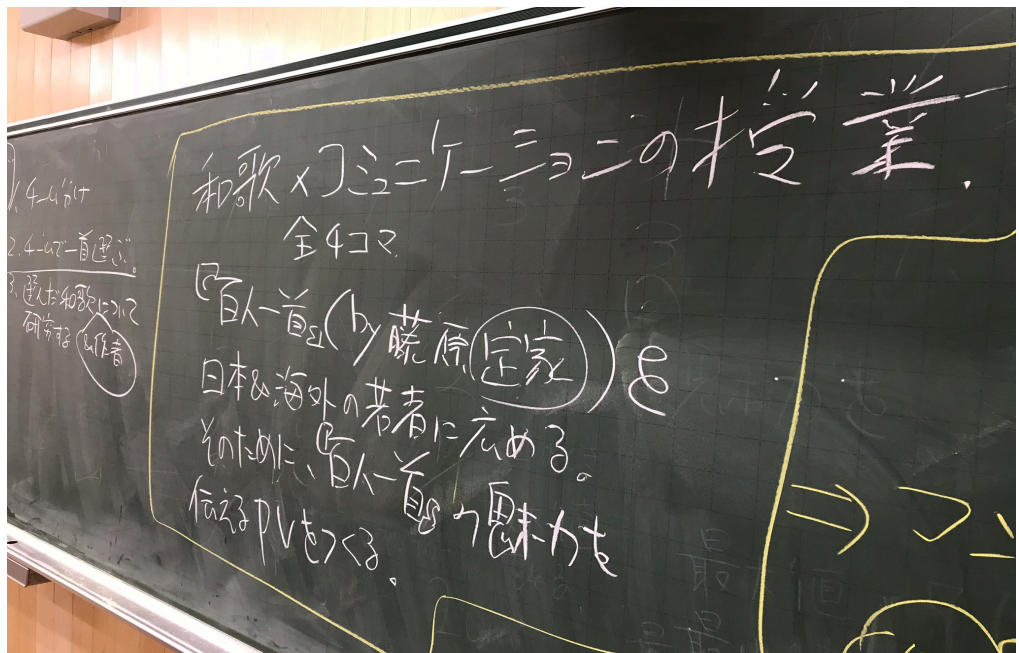 1. チーム分け
2. チームで一首選ぶ。
3. 選んだ和歌について
研究する &作者
和歌×コミュニケーションの授業.
全4コマ
『百人一首』(by 藤原定家)を
日本&海外の若者に広める。
そのために、『百人一首』の魅力を
伝えるPVをつくる.
⇒